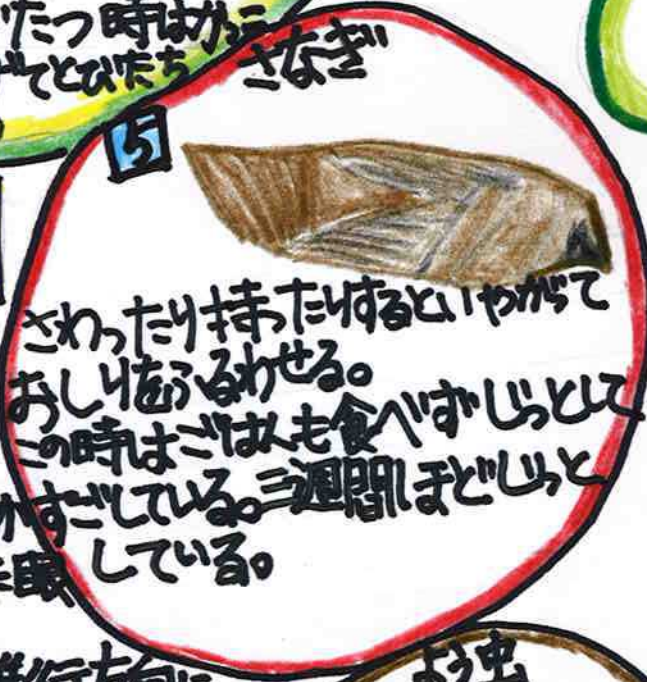 たつ時はか
てとびたち
さなぎ
5
さわったり持ったりするといやがって
おしりをふるわせる。
この時はごはんも食べずじっとして
すごしている。三週間ほどじっと
している。
眼
進行方向に
よう虫